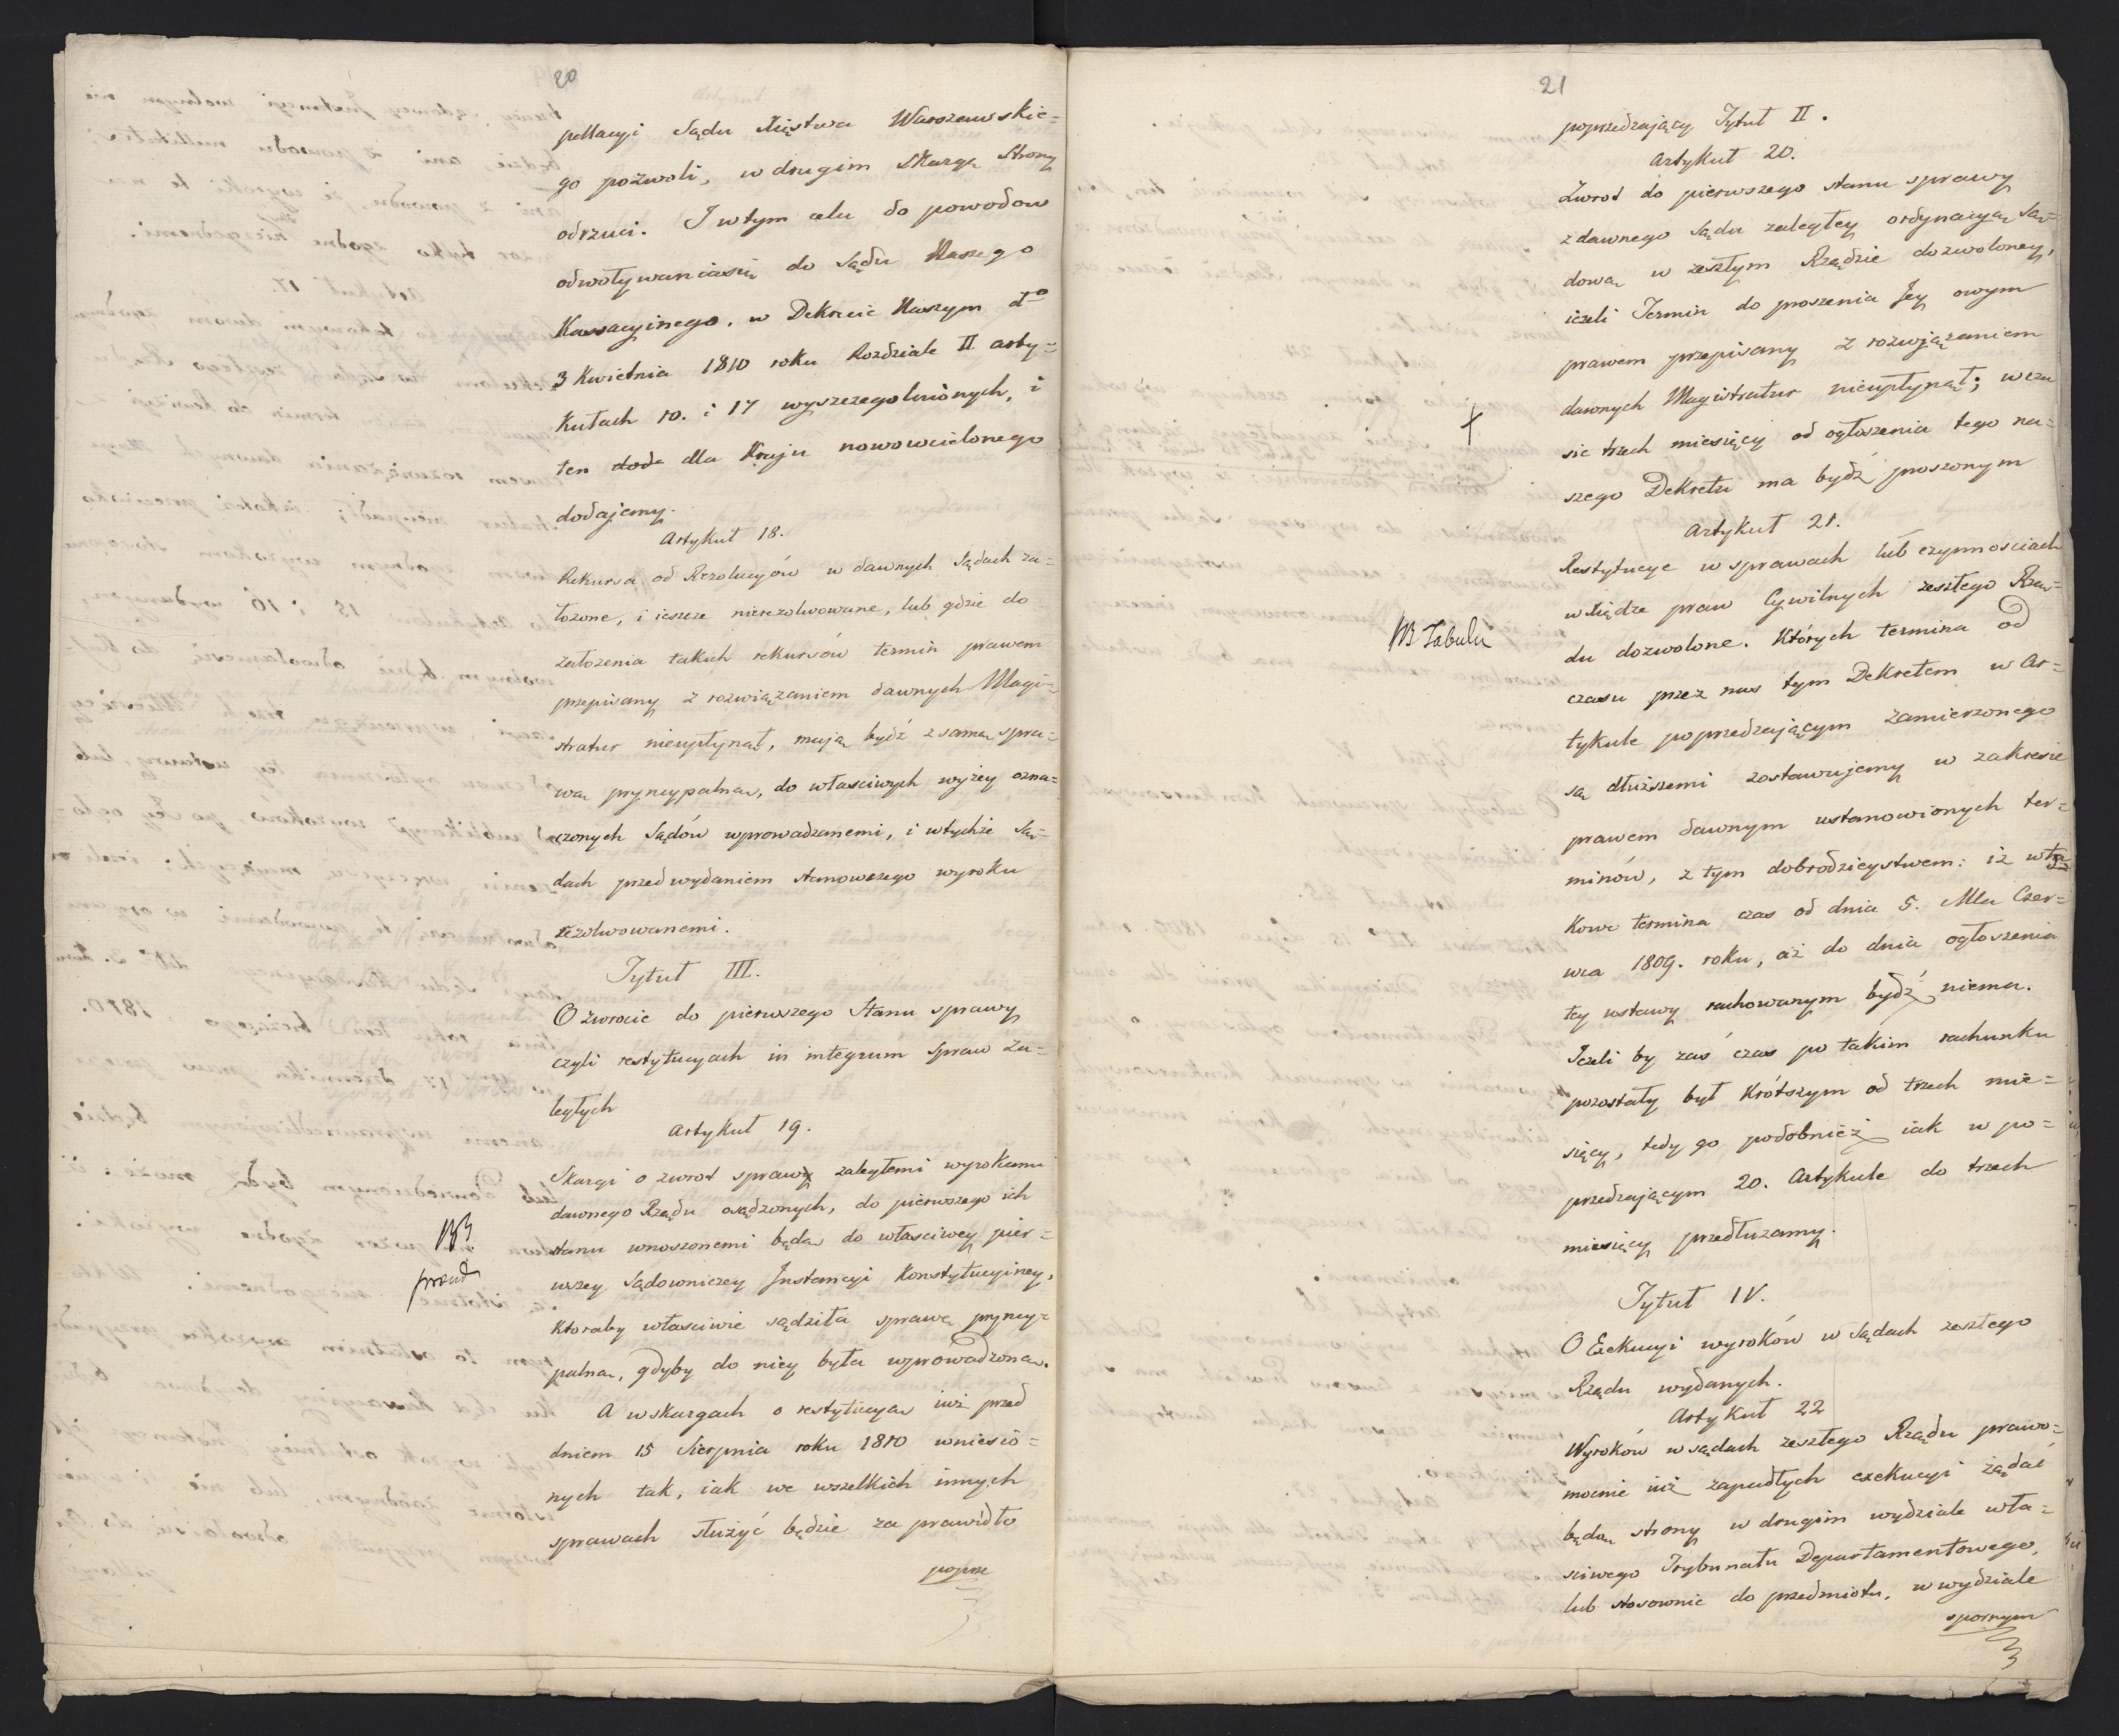 20
pellacyi Sądu Xięstwa Warszawskie=
go pozwoli, w drugim Skargę Strony
odrzuci. I w tym celu do powodow
odwoływaniasię do Sądu Naszego
Kassacyinego, w Dekrecie Naszym do
3 Kwietnia 1810 roku Rozdziale II arty=
kułach 10. i 17 wyszczegolnionych, i
ten doda dla Kraju nowowcielonego
dodajemy.
Artykuł 18.
Rekursa od Rezolucyów w dawnych Sądach za=
łożone, i ieszcze nierezolwowane, lub gdzie do
założenia takich rekursów termin prawem
przepisany z rozwiązaniem dawnych Magi=
stratur nieupłynął, mają bydź z samą spra=
wą pryncypalną, do właściwych wyżey ozna=
czonych Sądów wprowadzanemi, i wtychże Są=
dach przed wydaniem stanowczego wyroku
rezolwowanemi.
Tytuł III.
O zwrocie do pierwszego Stanu sprawy
czyli restytucyach in integrum Spraw Za=
ległych
Artykuł 19.
Skargi o zwrot sprawy zaległemi wyrokami
dawnego Rządu osądzonych, do pierwszego ich
NB.
stanu wnoszonemi będą do właściwey pier=
wszey Sądowniczey Instancyi Konstytucyiney,
ktoraby właściwie sądziła sprawę pryncy=
palną, gdyby do niey była wprowadzona.
A w skargach o restytucyą iuż przed
dniem 15 Sierpnia roku 1810 wniesio=
nych tak, iak we wszelkich innych
sprawach służyć będzie za prawidło
poprze
21
poprzedzaiący Tytuł II.
Artykuł 20.
Zwrot do pierwszego stanu sprawy
z dawnego Sądu zaległey ordynacyą Są=
dową w zeszłym Rządzie dozwoloney,
ieżeli Termin do proszenia Jey owym
prawem przepisany z rozwiązaniem
dawnych Magistratur nieupłynął; w cza
+
sie trzech miesięcy od ogłoszenia tego na=
szego Dekretu ma bydź proszonym
Artykuł 21.
Restytucye w sprawach lub czynnościach
w Xiędze praw Cywilnych zeszłego Rzą=
NB Tabula
du dozwolone. Których termina od
czasu przez nas tym Dekretem w Ar=
tykule poprzedzaiącym zamierzonego
są dłuższemi zostawujemy w zakresie
prawem dawnym ustanowionych ter=
minów, z tym dobrodzieystwem: iż w ta
kowe termina czas od dnia 5. Mca Czer=
wca 1809. roku, aż do dnia ogłoszenia
tey ustawy rachowanym bydź niema.
Jeżeli by zaś czas po takim rachunku
pozostały był krótszym od trzech mie=
sięcy, tedy go podobnież iak w po=
przedzaiącym 20. Artykule do trzech
miesięcy przedłużamy.
Tytuł IV.
O Exekucyi wyroków w Sądach zeszłego
Rządu wydanych.
Artykuł 22
Wyroków w sądach zeszłego Rządu prawo=
mocnie iuż zapadłych exekucyi żądać
będą strony w drugim wydziale wła=
sciwego Trybunału Departamentowego,
lub stosownie do przedmiotu, w wydziale
spornym